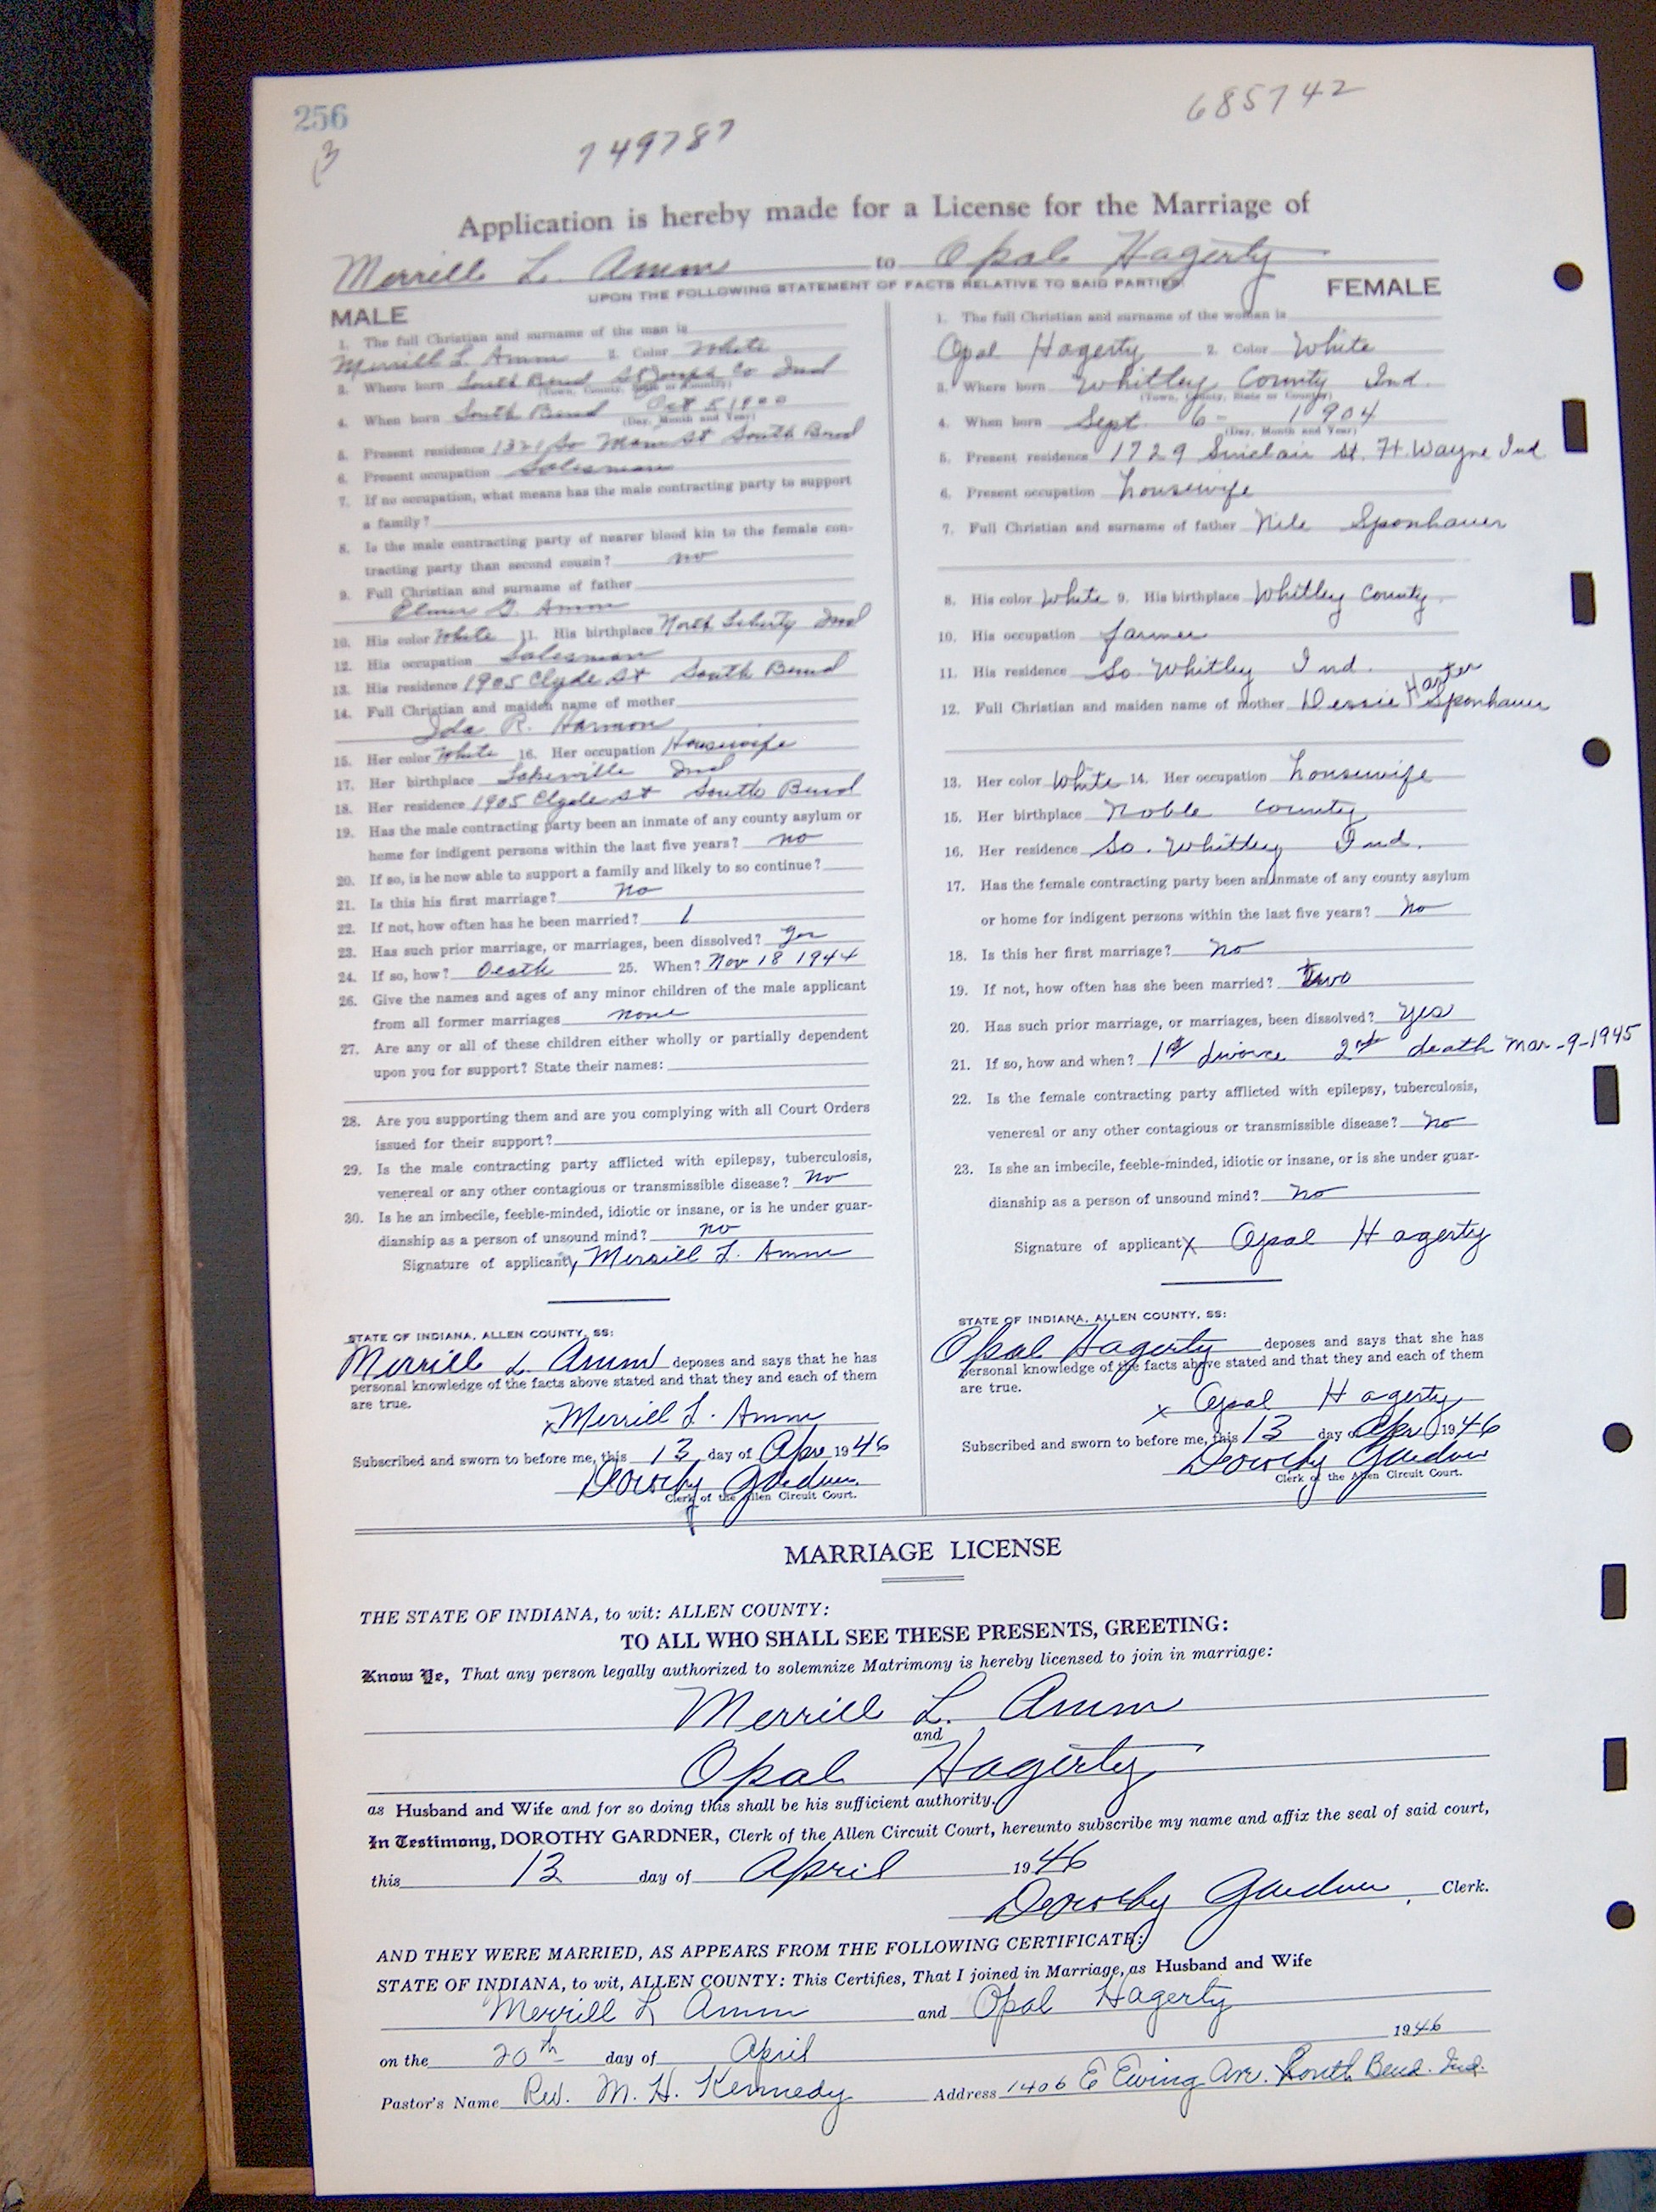 256
3
749787
685742
Application is hereby made for a License for the Marriage of
Merrill L. Amm to Opal Hagerty
UPON THE FOLLOWING STATEMENT OF FACTS RELATIVE TO SAID PARTIES.
MALE
1. The full Christian and surname of the man is
Merrill L. Amm 2. Color White
3. Where born South Bend St Joseph Co Ind
(Town, County, State or Country)
4. When born South Bend Oct 5 1900
(Day, Month and Year)
5. Present residence 1321 So Main St South Bend
6. Present occupation Salesman
7. If no occupation, what means has the male contracting party to support
a family?
8. Is the male contracting party of nearer blood kin to the female con-
tracting party than second cousin? no
9. Full Christian and surname of father
Elmer G. Amm
10. His color White 11. His birthplace North Liberty Ind
12. His occupation Salesman
13. His residence 1905 Clyde St South Bend
14. Full Christian and maiden name of mother
Ida R. Harmon
15. Her color White 16. Her occupation Housewife
17. Her birthplace Lakeville Ind
18. Her residence 1905 Clyde St South Bend
19. Has the male contracting party been an inmate of any county asylum or
home for indigent persons within the last five years? no
20. If so, is he now able to support a family and likely to so continue?
21. Is this his first marriage? No
22. If not, how often has he been married? 1
23. Has such prior marriage, or marriages, been dissolved? yes
24. If so, how? Death 25. When? Nov 18 1944
26. Give the names and ages of any minor children of the male applicant
from all former marriages none
27. Are any or all of these children either wholly or partially dependent
upon you for support? State their names:
28. Are you supporting them and are you complying with all Court Orders
issued for their support?
29. Is the male contracting party afflicted with epilepsy, tuberculosis,
venereal or any other contagious or transmissible disease? No
30. Is he an imbecile, feeble-minded, idiotic or insane, or is he under guar-
dianship as a person of unsound mind? no
Signature of applicant x Merrill L. Amm
STATE OF INDIANA, ALLEN COUNTY, SS:
Merrill L. Amm deposes and says that he has
personal knowledge of the facts above stated and that they and each of them
are true.
x Merrill L. Amm
Subscribed and sworn to before me, this 13 day of Apr 1946
Dorothy Gardner
Clerk of the Allen Circuit Court.
FEMALE
1. The full Christian and surname of the woman is
Opal Hagerty 2. Color White
3. Where born Whitley County Ind.
(Town, County, State or Country)
4. When born Sept. 6 - 1904
(Day, Month and Year)
5. Present residence 1729 Sinclair St. Ft. Wayne Ind
6. Present occupation housewife
7. Full Christian and surname of father Nile Sponhauer
8. His color White 9. His birthplace Whitley County
10. His occupation farmer
11. His residence So. Whitley Ind.
12. Full Christian and maiden name of mother Dessie Harter Sponhauer
13. Her color White 14. Her occupation housewife
15. Her birthplace Noble County
16. Her residence So. Whitley Ind.
17. Has the female contracting party been an inmate of any county asylum
or home for indigent persons within the last five years? No
18. Is this her first marriage? No
19. If not, how often has she been married? Two
20. Has such prior marriage, or marriages, been dissolved? Yes
21. If so, how and when? 1st divorce 2nd death Mar-9-1945
22. Is the female contracting party afflicted with epilepsy, tuberculosis,
venereal or any other contagious or transmissible disease? No
23. Is she an imbecile, feeble-minded, idiotic or insane, or is she under guar-
dianship as a person of unsound mind? No
Signature of applicant x Opal Hagerty
STATE OF INDIANA, ALLEN COUNTY, SS:
Opal Hagerty deposes and says that she has
personal knowledge of the facts above stated and that they and each of them
are true.
x Opal Hagerty
Subscribed and sworn to before me, this 13 day of Apr 1946
Dorothy Gardner
Clerk of the Allen Circuit Court.
MARRIAGE LICENSE
THE STATE OF INDIANA, to wit: ALLEN COUNTY:
TO ALL WHO SHALL SEE THESE PRESENTS, GREETING:
Know Ye, That any person legally authorized to solemnize Matrimony is hereby licensed to join in marriage:
Merrill L. Amm
and
Opal Hagerty
as Husband and Wife and for so doing this shall be his sufficient authority.
In Testimony, DOROTHY GARDNER, Clerk of the Allen Circuit Court, hereunto subscribe my name and affix the seal of said court,
this 13 day of April 1946
Dorothy Gardner, Clerk.
AND THEY WERE MARRIED, AS APPEARS FROM THE FOLLOWING CERTIFICATE:
STATE OF INDIANA, to wit, ALLEN COUNTY: This Certifies, That I joined in Marriage, as Husband and Wife
Merrill L Amm and Opal Hagerty
on the 20th day of April 1946
Pastor's Name Rev. M. H. Kennedy Address 1406 E Ewing Ave. South Bend. Ind.